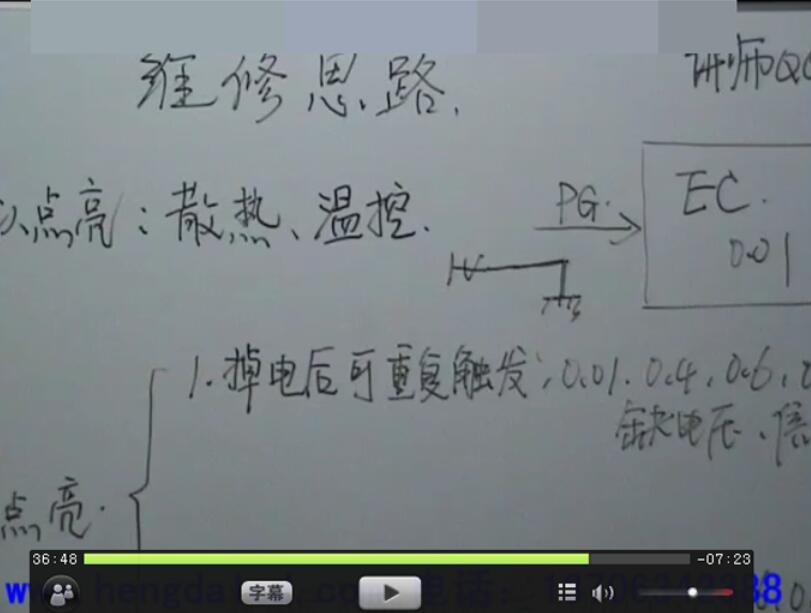 维修思路.
讲师QQ
点亮:散热、温控.
PG.
EC.
0.01
1.掉电后可重复触发,0.01.0.4,0.6,
缺电压、信
点亮.
36:48
-07:23
字幕